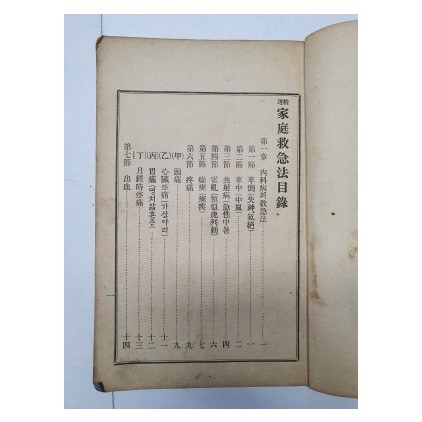 家庭救急法目錄
第一章 內科病의救急法 一
第一節 卒倒(失神氣絕) 一
第二節 卒中(中風) 二
第三節 熱射病(急性中暑) 四
第四節 霍亂(類似虎列剌) 六
第五節 癲癎(癎疾) 七
第六節 疼痛 九
(甲) 頭痛 九
(乙) 心臟疼痛(가삼아리) 十一
(丙) 胃痛 十二
(丁) 月經時疼痛 十三
第七節 出血 十四
一